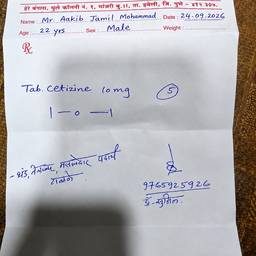 हॉ बंगला, धुले कॉलनी नं. १, मांजरी बु.॥, ता. हवेली, जि. पुणे - ४१२ ३०७.
Name Mr. Aakib Jamil Mohammad Date : 24.09.2026
Age 22 yrs Sex : Male Weight
Rx
Tab. Cetizine 10mg (5)
1 — 0 — 1
थंड, तेलकट, मसालेदार पदार्थ
टाळणे
9765925926